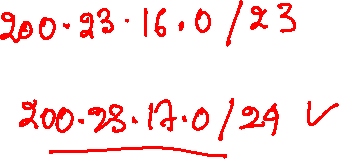 200.23.16.0/23
200.23.17.0/24 ✓